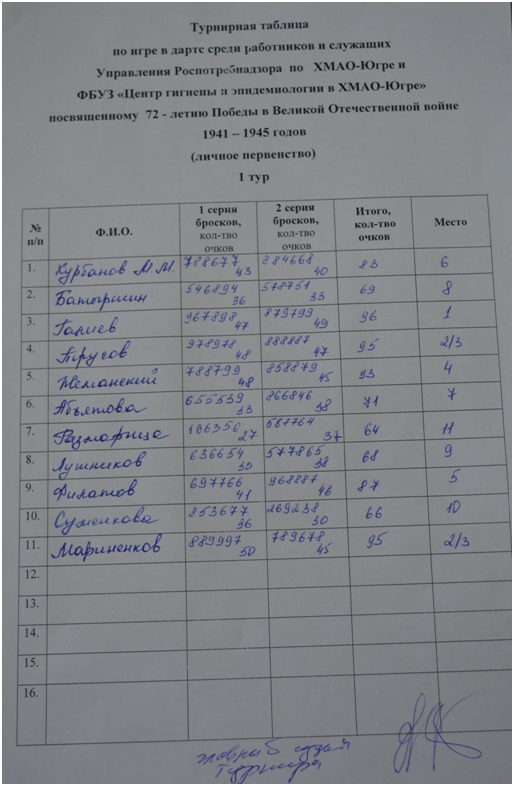 Турнирная таблица
по игре в дартс среди работников и служащих
Управления Роспотребнадзора по ХМАО-Югре и
ФБУЗ «Центр гигиены и эпидемиологии в ХМАО-Югре»
посвященному 72 - летию Победы в Великой Отечественной войне
1941 – 1945 годов
(личное первенство)
1 тур
№ п/п Ф.И.О. 1 серия бросков, кол-тво очков 2 серия бросков, кол-тво очков Итого, кол-тво очков Место
1. Курбанов М.М. 788677 43 884668 40 83 6
2. Батыршин 546894 36 578751 33 69 8
3. Галиев 967898 47 879799 49 96 1
4. 978978 48 888887 47 95 2/3
5. Жеманский 788799 48 858879 45 93 4
6. 655539 33 866846 38 71 7
7. 166356 27 567764 37 64 11
8. Лушников 636654 30 577865 38 68 9
9. Филатов 697766 41 968887 46 87 5
10. Суженкова 853677 36 269238 30 66 10
11. Мариненков 889997 50 789678 45 95 2/3
12.
13.
14.
15.
16.
главный судья
Турнира